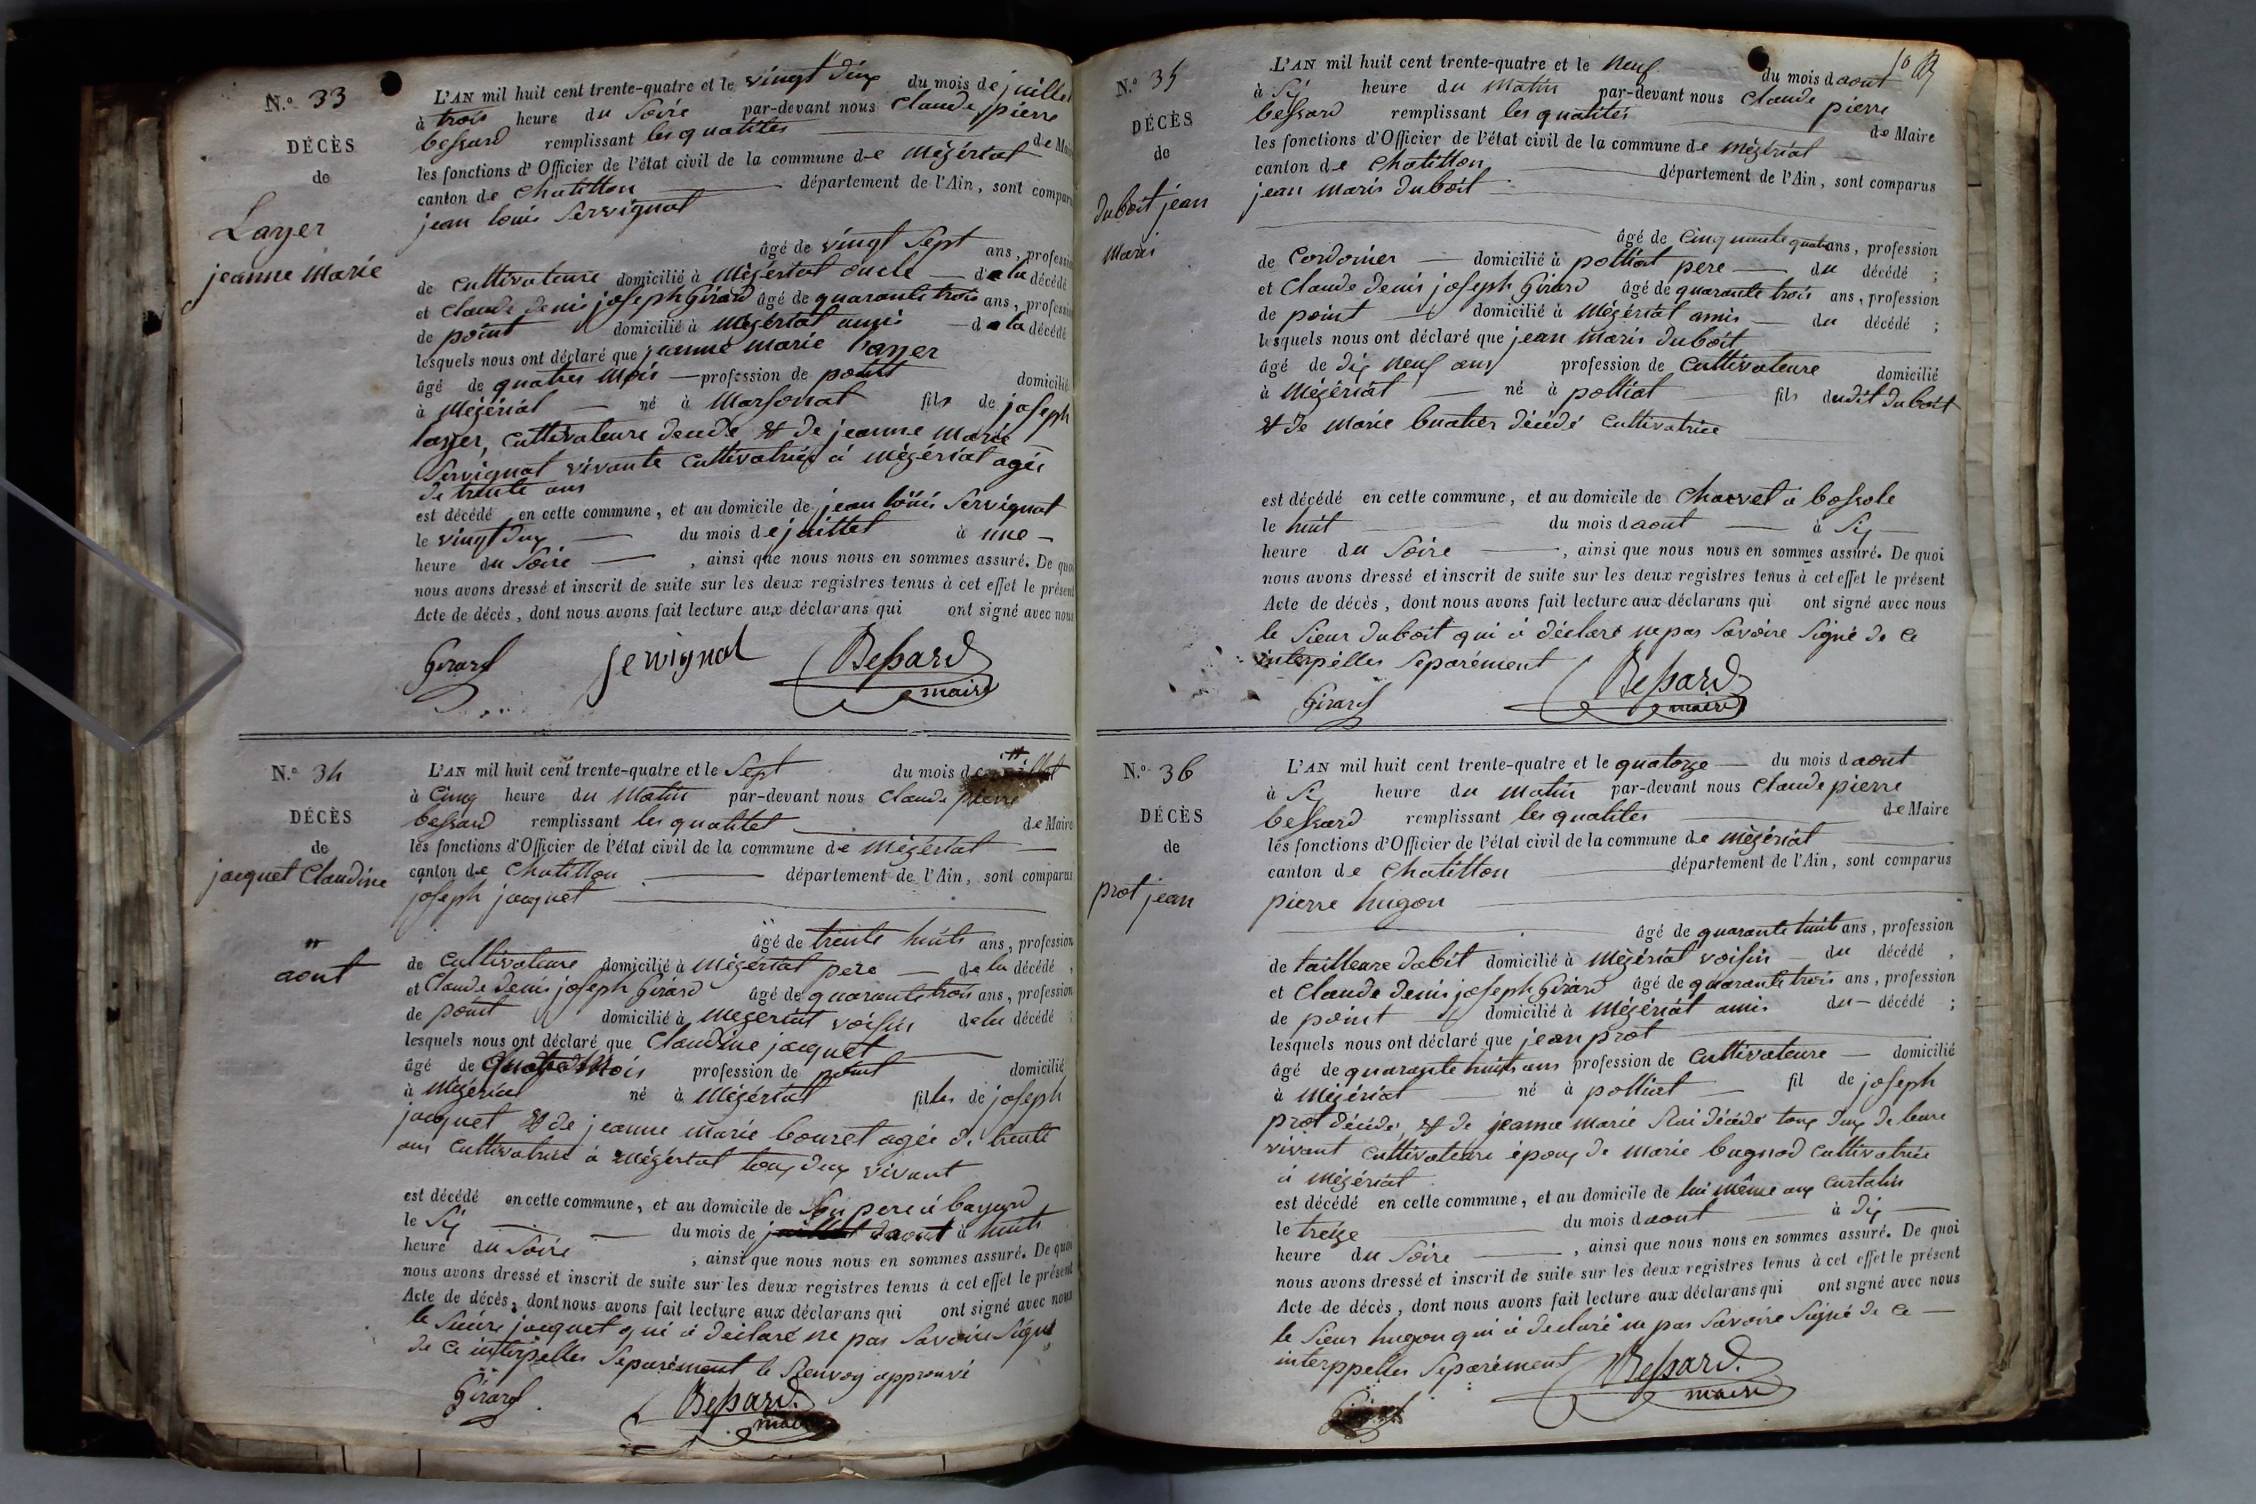 N.° 33
DÉCÈS
de
Layer
jeanne marie
L'AN mil huit cent trente-quatre et le vingt dux du mois de juillet
à trois heure du Soire par-devant nous Claude pierre
bessard remplissant les qualités de Maire
les fonctions d'Officier de l'état civil de la commune de mézériat
canton de Chatillon département de l'Ain, sont comparus
jean louis Servignat
âgé de vingt Sept ans, profession
de Cultivateure domicilié à Mézériat oncle de la décédé
et Claude denis joseph Girard âgé de quarante trois ans, profession
de point domicilié à Mézériat amis de la décédé
lesquels nous ont déclaré que jeanne marie Layer
âgé de quatres mois profession de point domicilié
à Mézériat né à Marsonat fils de joseph
layer, Cultivateure decede et de jeanne marie
Servignat vivante Cultivatrice à Mézériat agée
de trente ans
est décédé en cette commune, et au domicile de jean louis Servignat
le vingt dux du mois de juillet à une
heure du Soire, ainsi que nous nous en sommes assuré. De quoi
nous avons dressé et inscrit de suite sur les deux registres tenus à cet effet le présent
Acte de décès, dont nous avons fait lecture aux déclarans qui ont signé avec nous
Girard Servignat Bessard
maire
N.° 34
DÉCÈS
de
jacquet Claudine
aout
L'AN mil huit cent trente-quatre et le Sept du mois de juillet
à Cinq heure du Matin par-devant nous Claude pierre
bessard remplissant les qualitet de Maire
les fonctions d'Officier de l'état civil de la commune de Mézériat
canton de Chatillon département de l'Ain, sont comparus
joseph jacquet
âgé de trente huits ans, profession
de Cultivateure domicilié à Mézériat pere de la décédé,
et Claude denis joseph Girard âgé de quarante trois ans, profession
de point domicilié à Mézériat voisin de la décédé;
lesquels nous ont déclaré que Claudine jacquet
âgé de quatre Mois profession de point domicilié
à Mézériat né à Mézériat filles de joseph
jacquet et de jeanne marie bouret agée de trente
ans Cultivatrice à Mézériat toux dux vivant
est décédé en cette commune, et au domicile de Son pere à bayard
le Six du mois de juillet daout à huits
heure du Soire, ainsi que nous nous en sommes assuré. De quoi
nous avons dressé et inscrit de suite sur les deux registres tenus à cet effet le présent
Acte de décès, dont nous avons fait lecture aux déclarans qui ont signé avec nous
le Sieure jacquet qui à déclaré ne pas Savoire Signé
de ce interpelles Separément le Renvoy approuvé
Girard Bessard
maire
N.° 35
DÉCÈS
de
duboit jean
maris
L'AN mil huit cent trente-quatre et le neuf du mois daout
à Six heure du Matin par-devant nous Claude pierre
bessard remplissant les qualités de Maire
les fonctions d'Officier de l'état civil de la commune de mézériat
canton de Chatillon département de l'Ain, sont comparus
jean maris duboit
âgé de Cinquante quatre ans, profession
de Cordonier domicilié à polliat pere du décédé;
et Claude denis joseph Girard âgé de quarante trois ans, profession
de point domicilié à Mézériat amis du décédé;
lesquels nous ont déclaré que jean maris duboit
âgé de dix neuf ans profession de Cultivateure domicilié
à Mézériat né à polliat fils dudit duboit
et de Marie buatier décédé Cultivatrice
est décédé en cette commune, et au domicile de Charvet à bossole
le huit du mois daout à Six
heure du Soire, ainsi que nous nous en sommes assuré. De quoi
nous avons dressé et inscrit de suite sur les deux registres tenus à cet effet le présent
Acte de décès, dont nous avons fait lecture aux déclarans qui ont signé avec nous
le Sieur duboit qui à déclaré ne pas Savoire Signé de ce
interpelles Separément
Girard Bessard
maire
N.° 36
DÉCÈS
de
prot jean
L'AN mil huit cent trente-quatre et le quatorze du mois daout
à Six heure du Matin par-devant nous Claude pierre
bessard remplissant les qualites de Maire
les fonctions d'Officier de l'état civil de la commune de mézériat
canton de Chatillon département de l'Ain, sont comparus
pierre hugon
âgé de quarante huit ans, profession
de tailleure dabit domicilié à Mézériat voisin du décédé,
et Claude denis joseph Girard âgé de quarante trois ans, profession
de point domicilié à Mézériat amis du décédé;
lesquels nous ont déclaré que jean prot
âgé de quarante huits ans profession de Cultivateure domicilié
à Mézériat né à polliat fil de joseph
prot décédé, et de jeanne marie décédé toux dux de leure
vivant Cultivateure époux de marie bugnod Cultivatrice
à mézériat
est décédé en cette commune, et au domicile de lui même aux Curtalin
le treize du mois daout à dix
heure du Soire, ainsi que nous nous en sommes assuré. De quoi
nous avons dressé et inscrit de suite sur les deux registres tenus à cet effet le présent
Acte de décès, dont nous avons fait lecture aux déclarans qui ont signé avec nous
le Sieur hugon qui à declaré ne pas Savoire Signé de ce
interppelles Separément
Girard Bessard
maire